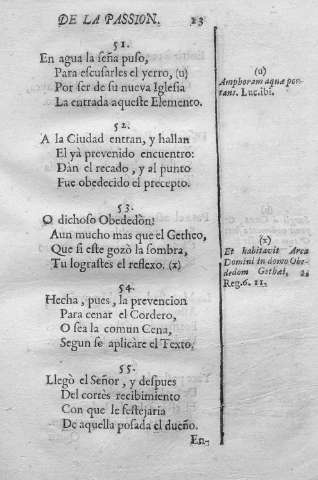 DE LA PASSION. 23
51.
En agua la seña puso,
Para escusarles el yerro, (u)
Por ser de su nueva Iglesia
La entrada aqueste Elemento.
(u)
Amphoram aquæ por-
tans. Luc. ibi.
52.
A la Ciudad entran, y hallan
El yà prevenido encuentro:
Dàn el recado, y al punto
Fue obedecido el precepto.
53.
O dichoso Obededòn!
Aun mucho mas que el Getheo,
Que si este gozò la sombra,
Tu lograstes el reflexo. (x)
(x)
Et habitavit Arca
Domini in domo Obe-
dedom Gethæi, 2.
Reg. 6. 11.
54.
Hecha, pues, la prevencion
Para cenar el Cordero,
O sea la comun Cena,
Segun se aplicàre el Texto.
55.
Llegò el Señor, y despues
Del cortès recibimiento
Con que le festejaria
De aquella posada el dueño.
En-